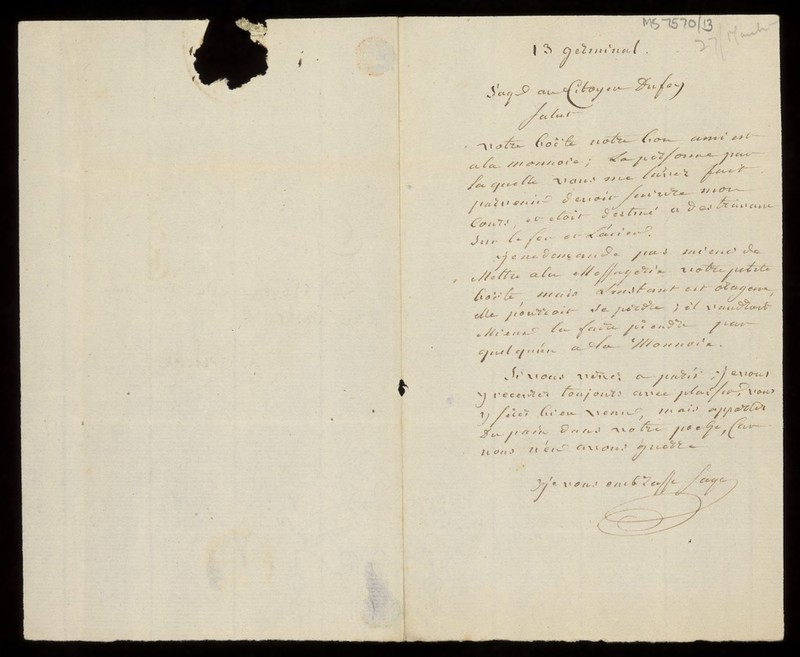 MS 7570/13
27 March
13 germinal.
Sage au Citoyen Dufoy
Salut
votre boëte notre bon ami est
a la monnoie; La personne par
la quelle vous me l'aviez fait
parvenir devoit suivre mon
Cours, et etoit destiné a des travaux
Sur le fer et L'acier.
je ne demande pas mieux de
Mettre a la Messagerie votre petite
boëte mais L'instant est orageux,
elle pourroit se perdre; il vaudroit
Mieux la faire prendre par
quelqu'un a la Monnoie.
Si vous venez a paris je vous
y recevrez toujours avec plaisir, vous
y serez bien venu, mais apportez
Du pain dans votre poche, Car
nous n'en avons guerre
je vous embrasse Sage